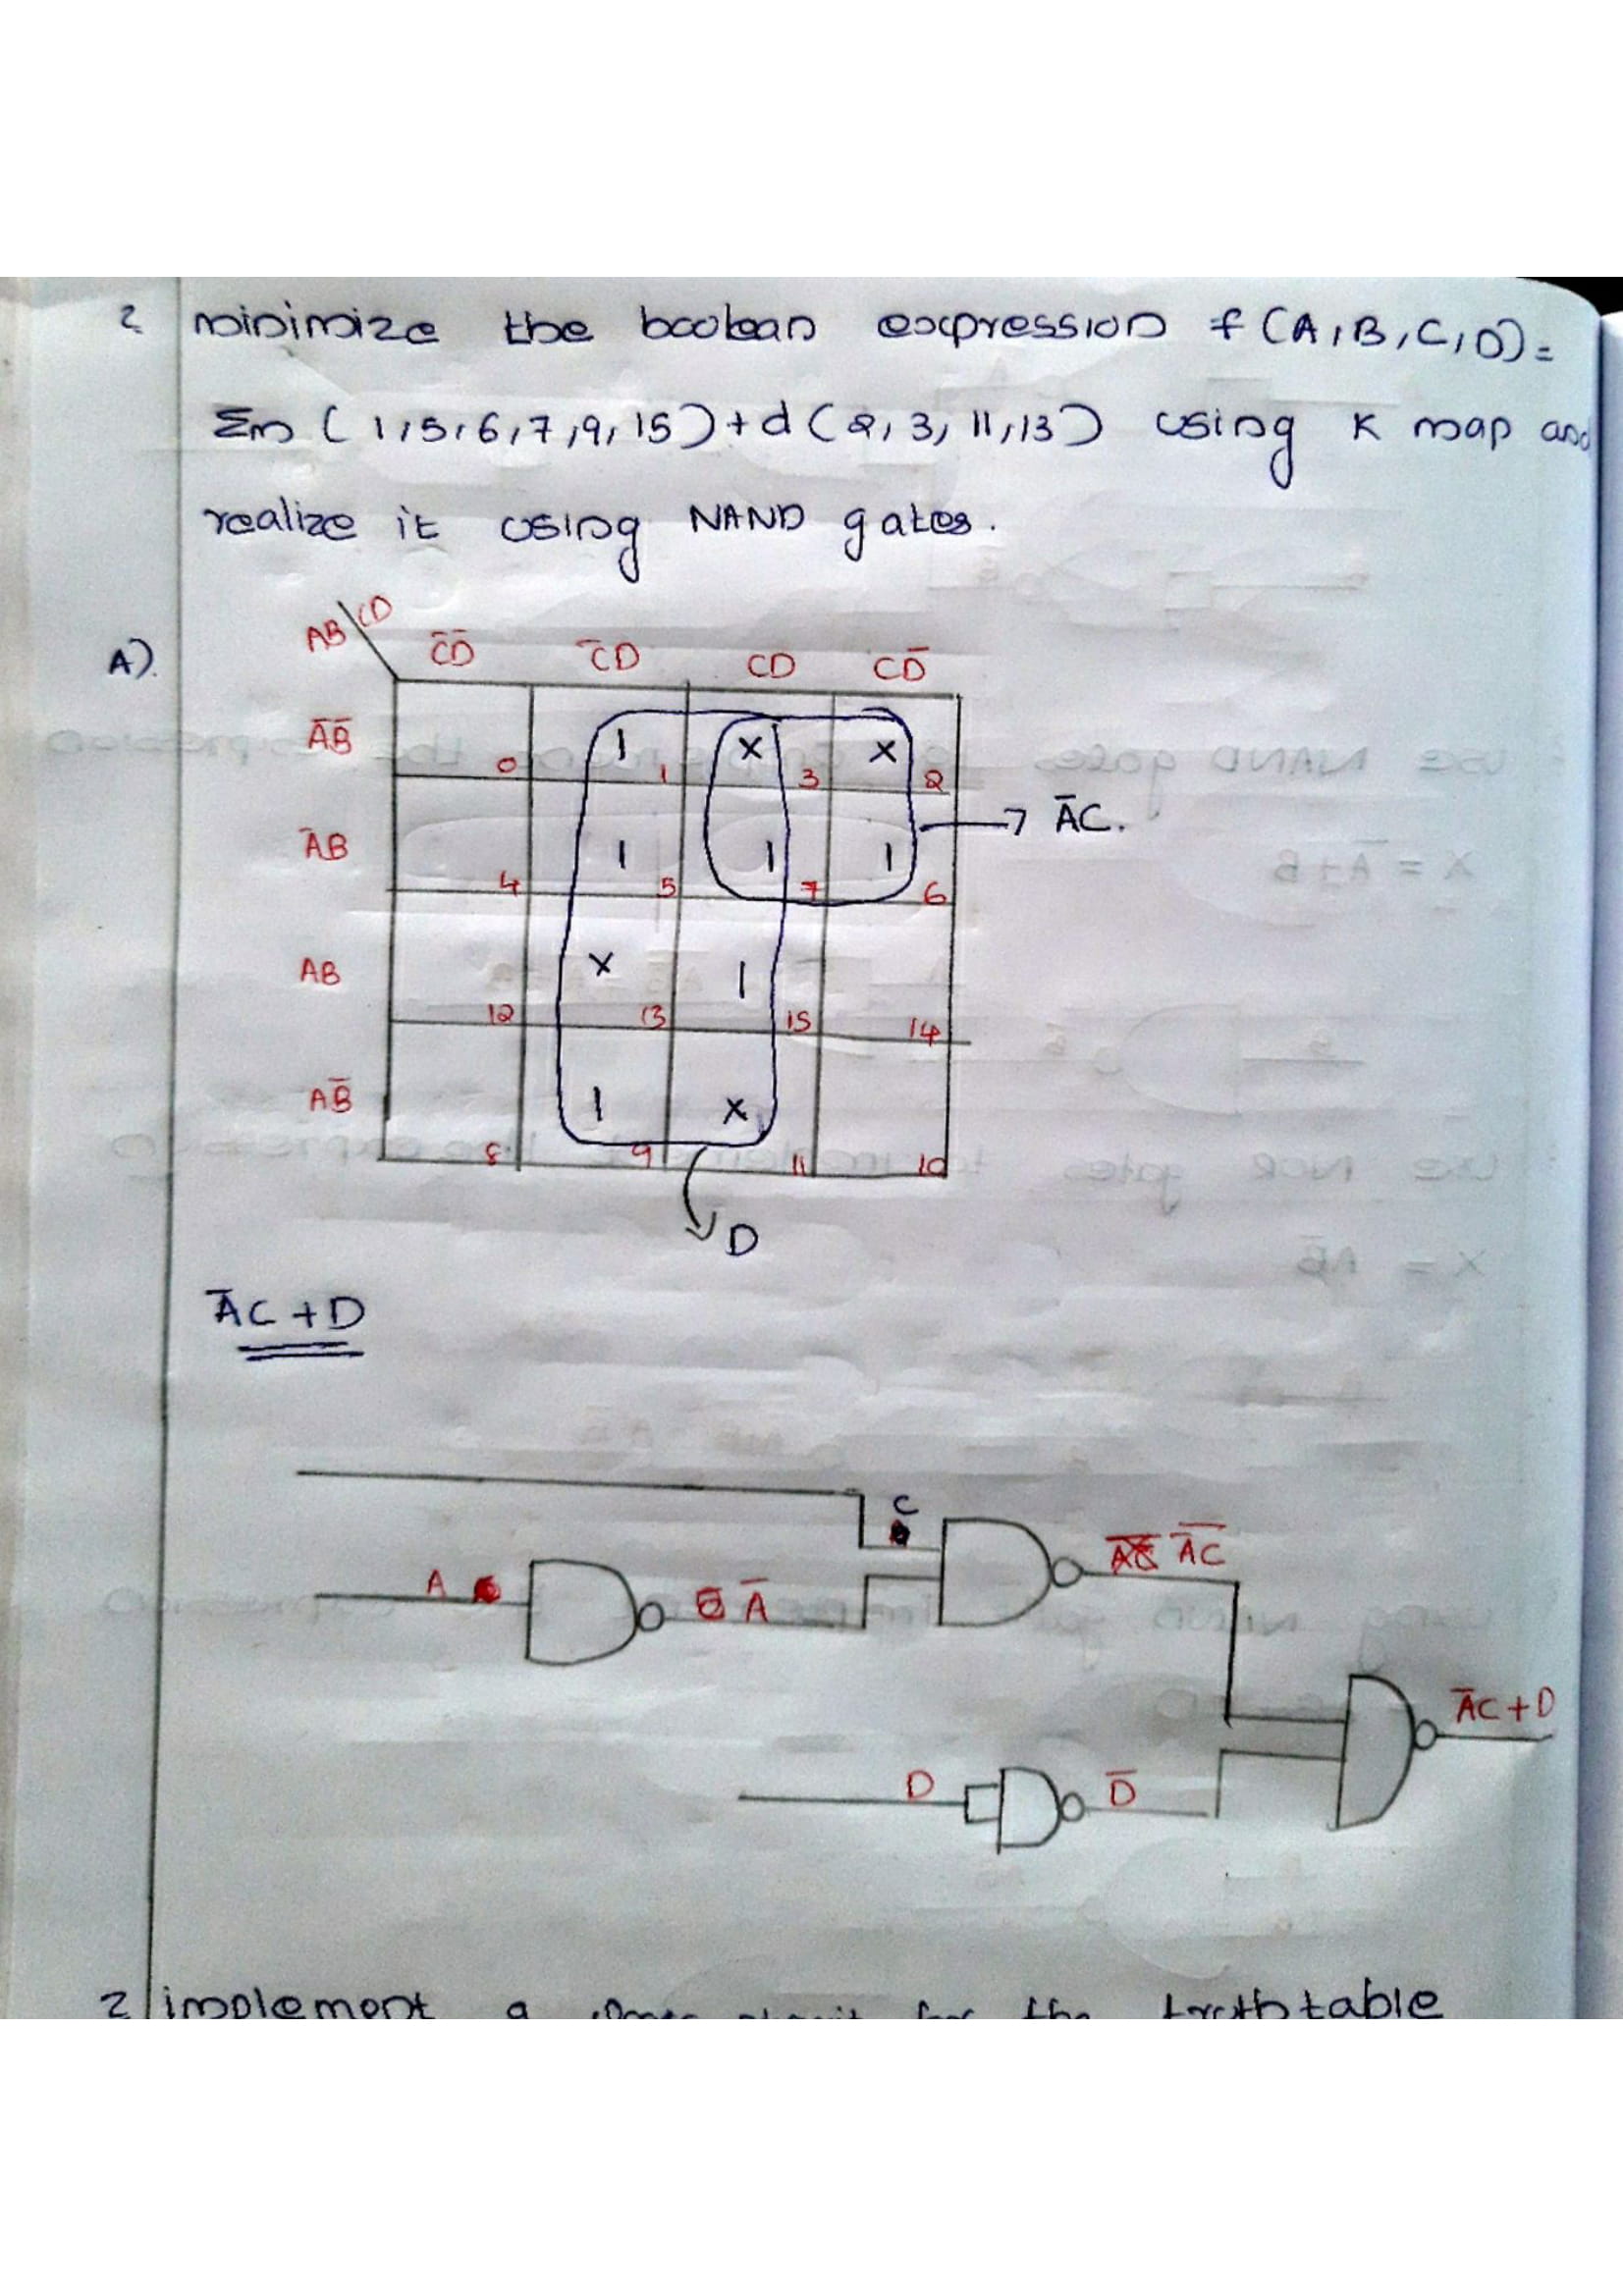 2 minimize the boolean expression f(A,B,C,D)=
Σm (1,5,6,7,9,15)+d(2,3,11,13) using K map and
realize it using NAND gates.
A).
AB CD
C̅D̅ C̅D CD CD̅
A̅B̅ 0 1 1 X 3 X 2
A̅B 4 1 5 1 7 1 6
→ A̅C.
AB 12 X 13 1 15 14
AB̅ 8 1 9 X 11 10
D
A̅C+D
C
A A̅ A̅C̅
A̅C+D
D D̅
2 implement a for the truthtable